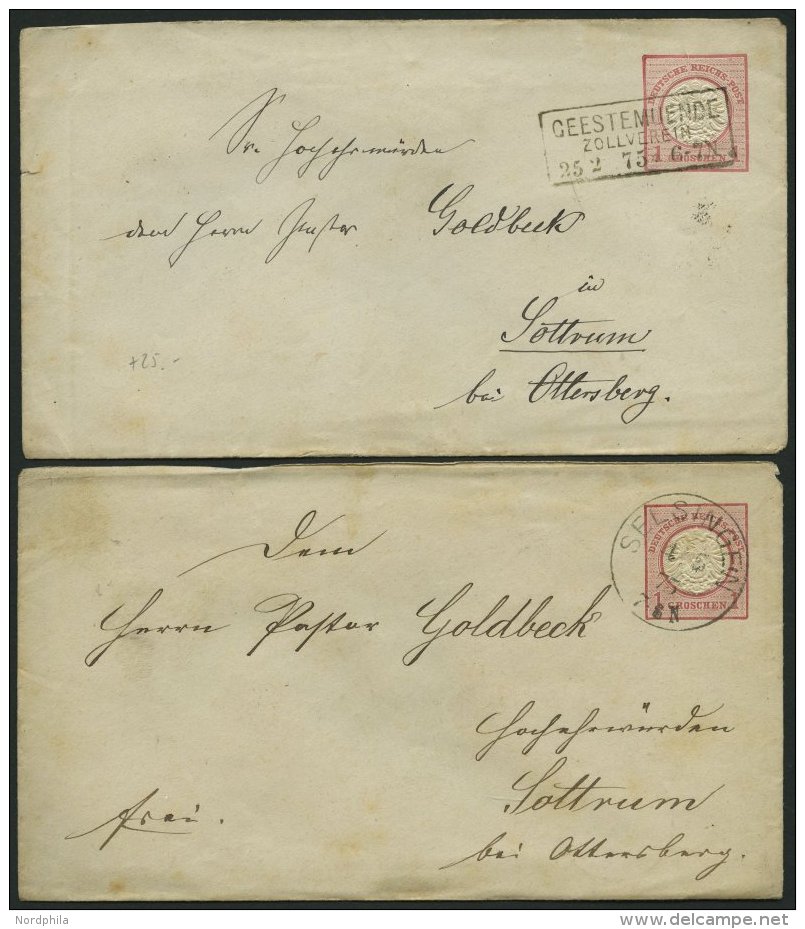 DEUTSCHE REICHS-POST
GEESTEMUENDE
ZOLLVEREIN
25 2 75 6-7N
1 GROSCHEN 1
Sr. Hochehrwürden
dem Herrn Pastor Goldbeck
in
Sottrum
bei Ottersberg.
+25.-
SELSINGEN
DEUTSCHE REICHS-POST
75
GROSCHEN 1
N
Dem
Herrn Pastor Goldbeck
Hochehrwürden
Sottrum
frei.
bei Ottersberg.
Nordphila
delcampe.net